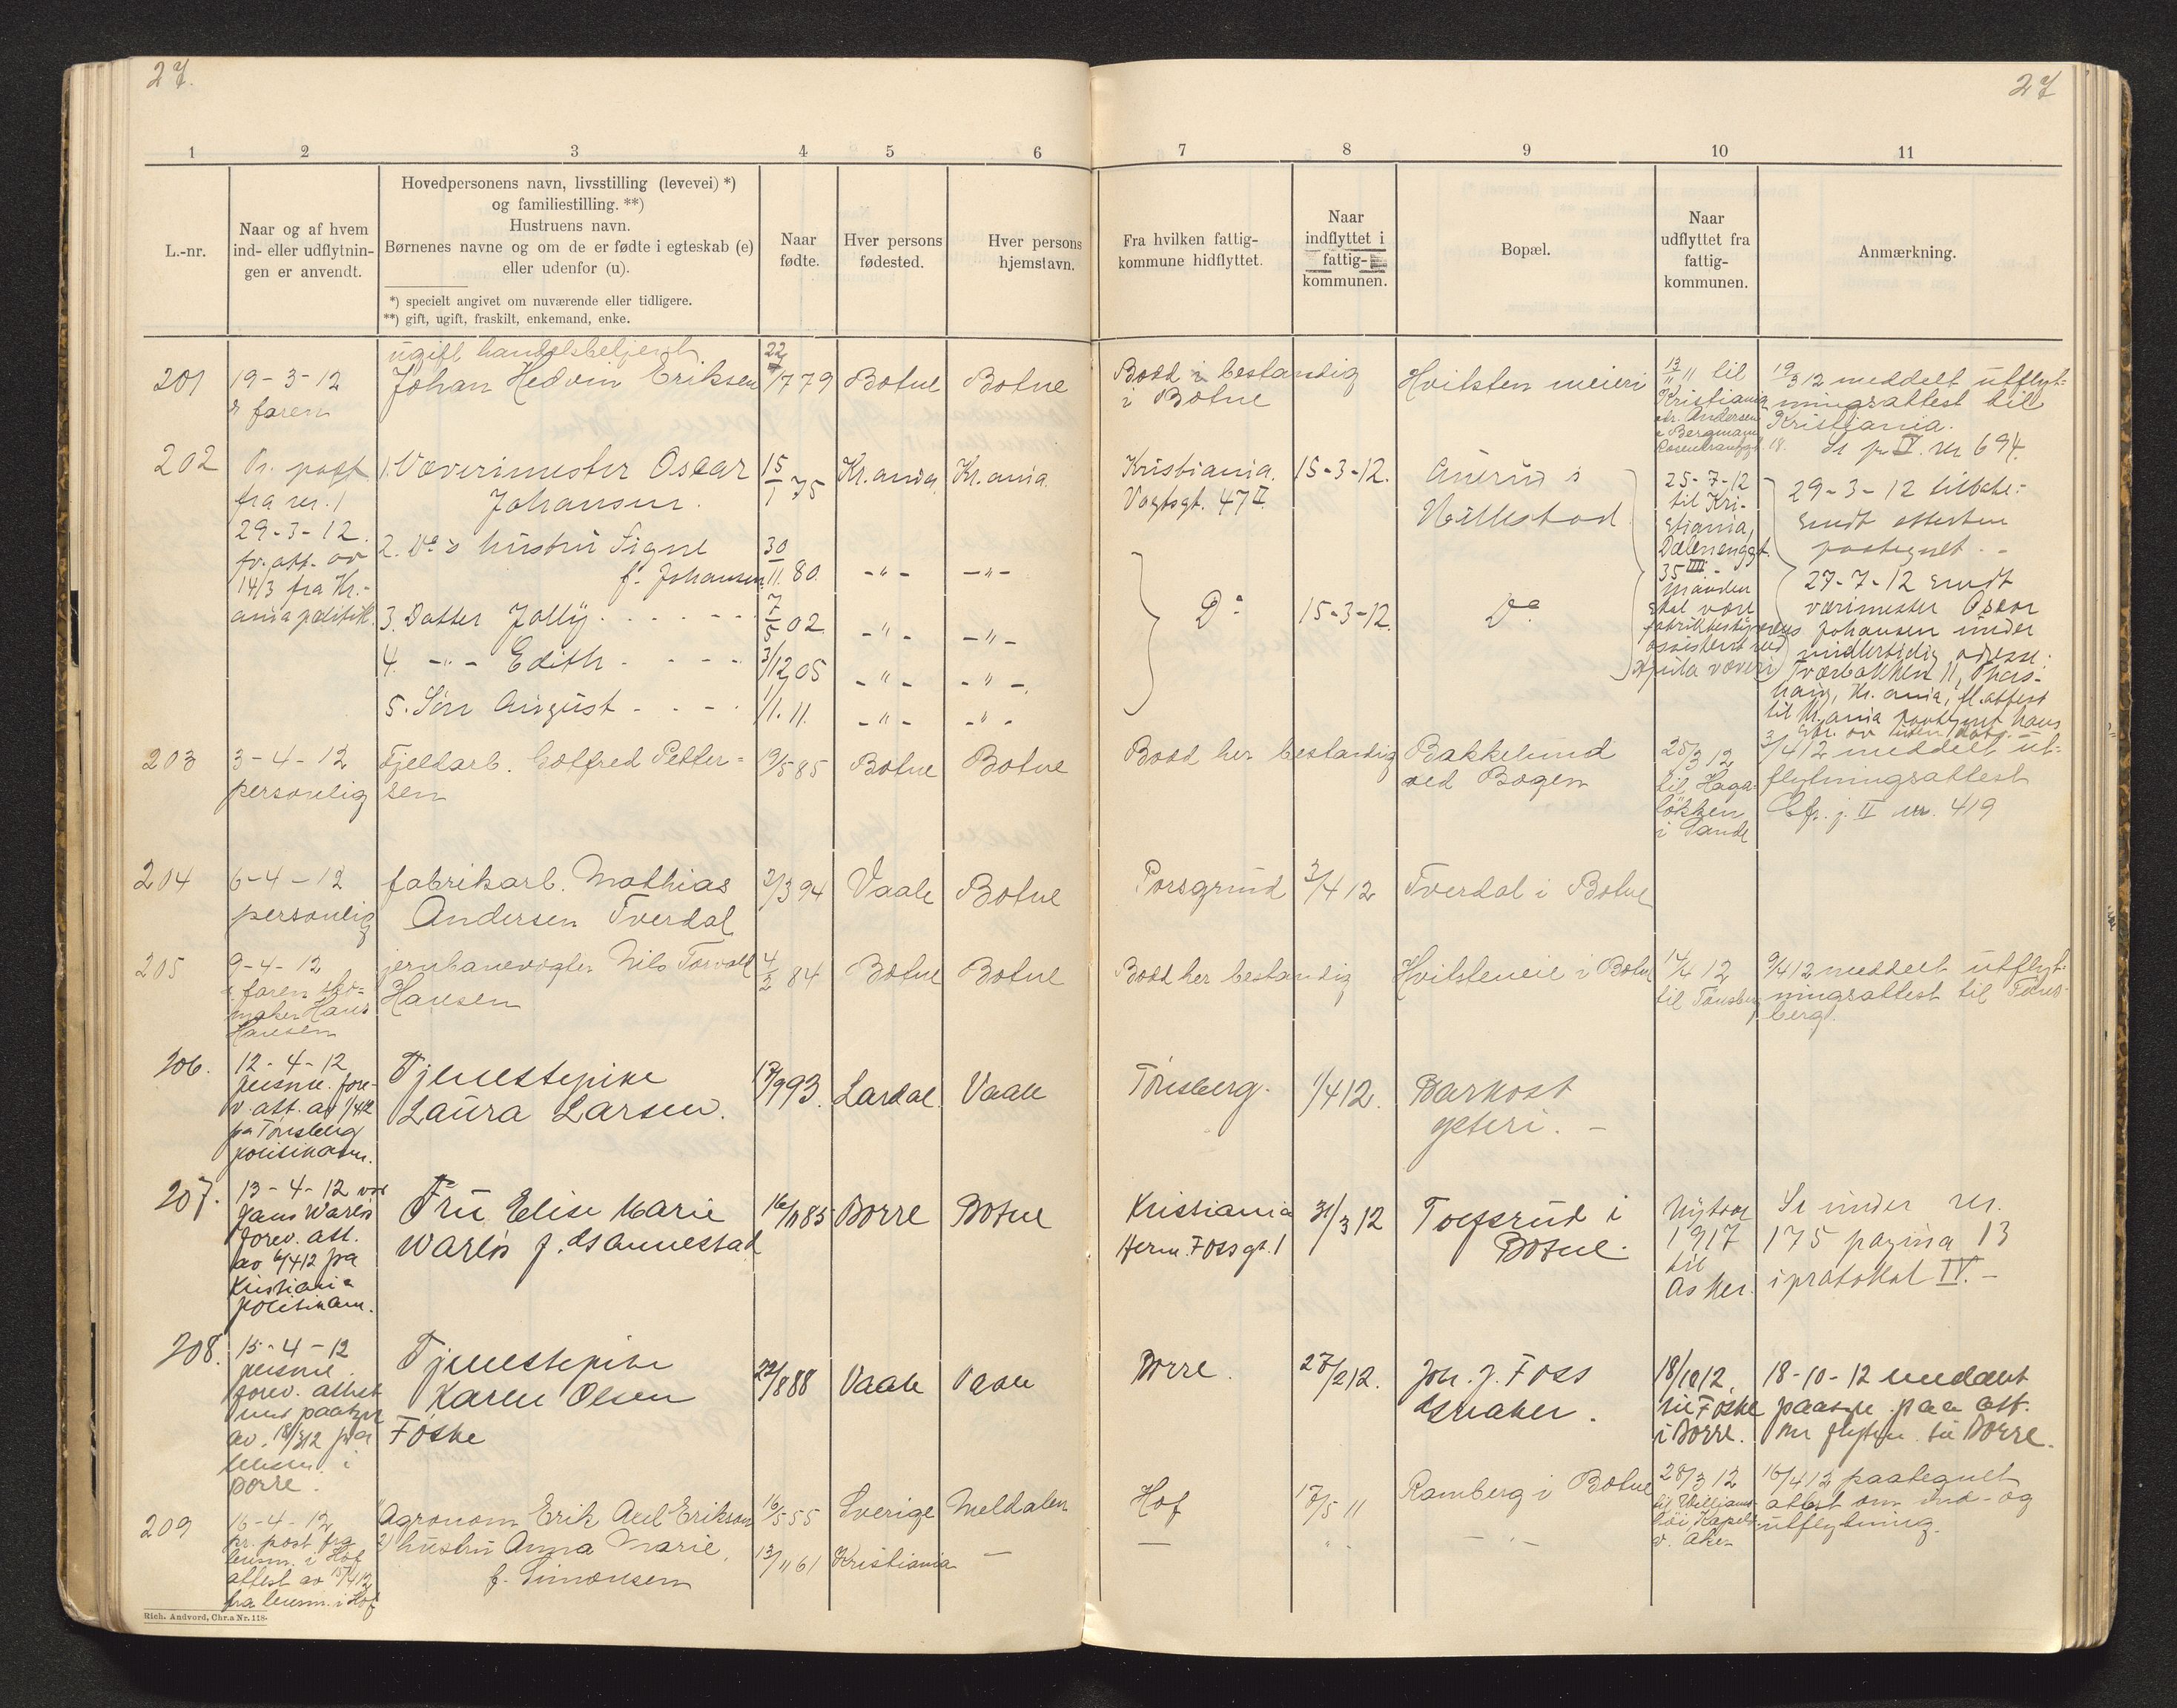 27.
27
1 2 3 4 5 6 7 8 9 10 11
L.-nr.
Naar og af hvem
ind- eller udflytnin-
gen er anvendt.
Hovedpersonens navn, livsstilling (levevei) *)
og familiestilling. **)
Hustruens navn.
Børnenes navne og om de er fødte i egteskab (e)
eller udenfor (u).
*) specielt angivet om nuværende eller tidligere.
**) gift, ugift, fraskilt, enkemand, enke.
Naar
fødte.
Hver persons
fødested.
Hver persons
hjemstavn.
Fra hvilken fattig-
kommune hidflyttet.
Naar
indflyttet i
fattig-
kommunen.
Bopæl.
Naar
udflyttet fra
fattig-
kommunen.
Anmærkning.
201
19-3-12
faren
ugift handelsbetjent
Johan Hedvin Eriksen
79
Botne
Botne
Bodd bestandig
i Botne
Hvitsten meieri
til
Kristiania
Andersen
Bergmann
18.
19/3 12 meddelt utflyt-
ningsattest til
Kristiania.
Se IV. nr 694.
202
Pr. post
fra nr. 1
29-3-12.
att. av
14/3 fra Kr.-
ania politik.
1. Væverimester Oscar
Johansen.
15/1 75
Kr.ania
Kr.ania.
Kristiania.
Vogtsgt. 47 II.
15-3-12.
i
2. Do's hustru Signe
f. Johansen
30/11. 80.
-"-
-"-
3. Datter Jolly . . . .
7/5 02
-"-
-"-
4. -"- Edith . - - -
3/12 05
-"-
-"-
5. Søn August - - - -
1/1. 11.
-"-
-"-
Do
15-3-12.
Do
25-7-12
til Kri-
stiania,
Dælenenggt.
35 IIII -
Manden
skal være
fabrikbestyrerens
assistent ved
væveri
29-3-12 tilbake-
sendt attesten
paategnet. -
27-7-12 sendt
Oscar
Johansen under
midlertidig adresse:
Tværbakken 11,
Kr.ania, fl.attest
til Kr.ania paategnet hans
203
3-4-12
personlig
Fjeldarb. Gotfred Petter-
sen
19/5 85
Botne
Botne
Bodd her bestandig
Bakkelund
ved Bogen
25/3 12
til Haga-
løkken
i Sande
3/4 12 meddelt ut-
flytningsattest
Cfr. j. II nr. 419
204
6-4-12
personlig
fabrikarb. Mathias
Andersen Tverdal
3/3 94
Vaale
Botne
Porsgrund
3/4 12
Tverdal i Botne
205
9-4-12
faren sko-
maker Hans
Hansen
jernbanevogter Nils Torvald
Hansen
4/2 84
Botne
Botne
Bodd her bestandig
Hvitsteneie i Botne
14/4 12
til Tønsberg
9/4 12 meddelt utflyt-
ningsattest til Tøns-
berg.
206.
12-4-12
fore-
v. att. av 1/4 12
fra Tønsberg
politikam.
Tjenestepike
Laura Larsen.
17/9 93.
Lardal.
Vaale
Tønsberg.
1/4 12.
Barkost
gsteri. -
207.
13-4-12 ved
Hans Warlo
forev. att.
av 6/4 12 fra
Kristiania
politikam.
Fru Elise Marie
Warlo f. Sannestad
16/11 85
Borre
Botne
Kristiania
Herm. Fossgt. 1
31/3 12
Tofsrud i
Botne.
Nytaar
1917
til
Asker.
Se under nr.
175 pagina 13
i protokol IV. -
208.
15-4-12
forev. attest
med paategn
av 18/3 12 fra
lensm. i
Borre.
Tjenestepike
Karen Olsen
Foske
22/8 88
Vaale
Vaale
Borre.
27/2 12.
Joh. J. Foss
Snaker.
18/10 12.
til Foske
i Borre.
18-10-12 meddelt
paategn. paa att.
om flytn. til Borre.
209
16-4-12
pr. post fra
lensm. i Hof
attest av 15/4 12
fra lensm. i Hof
Agronom Erik Axel Erikson
2) hustru Anna Marie
f. Simonsen
16/5 55
13/11 61
Sverige
Kristiania
Meldalen
-
Hof
-
17/5 11
" -
Ramberg i Botne
- " -
28/3 12
høi, Kapelv.
v. Aker
16/4 12 paategnet
attest om ind- og
utflytning.
Rich. Andvord, Chr.a Nr. 118.